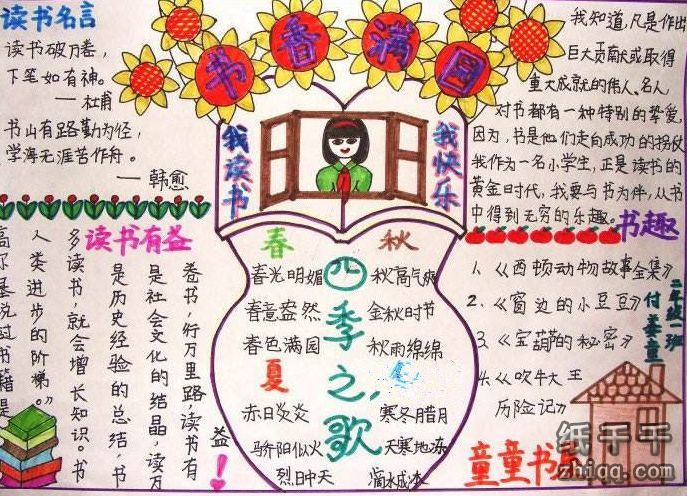 书香满园
读书名言
读书破万卷，
下笔如有神。
——杜甫
书山有路勤为径，
学海无涯苦作舟。
——韩愈
我读书
我快乐
我知道，凡是作出
巨大贡献或取得
重大成就的伟人、名人
对书都有一种特别的挚爱，
因为，书是他们走向成功的拐杖
我作为一名小学生，正是读书的
黄金时代，我要与书为伴，从书
中得到无穷的乐趣。
书趣
读书有益
高尔基说过书籍是
人类进步的阶梯。
多读书，就会增长知识。书
是历史经验的总结，书
是社会文化的结晶，读万
卷书，行万里路，读书有
益！
四季之歌
春
春光明媚
春意盎然
春色满园
夏
赤日炎炎
骄阳似火
烈日中天
秋
秋高气爽
金秋时节
秋雨绵绵
寒冬腊月
天寒地冻
滴水成冰
1.《西顿动物故事全集》
2.《窗边的小豆豆》
3.《宝葫芦的秘密》
4.《吹牛大王
历险记》
二年级一班
付姜童
童童书屋
纸于千
zhiqq.com